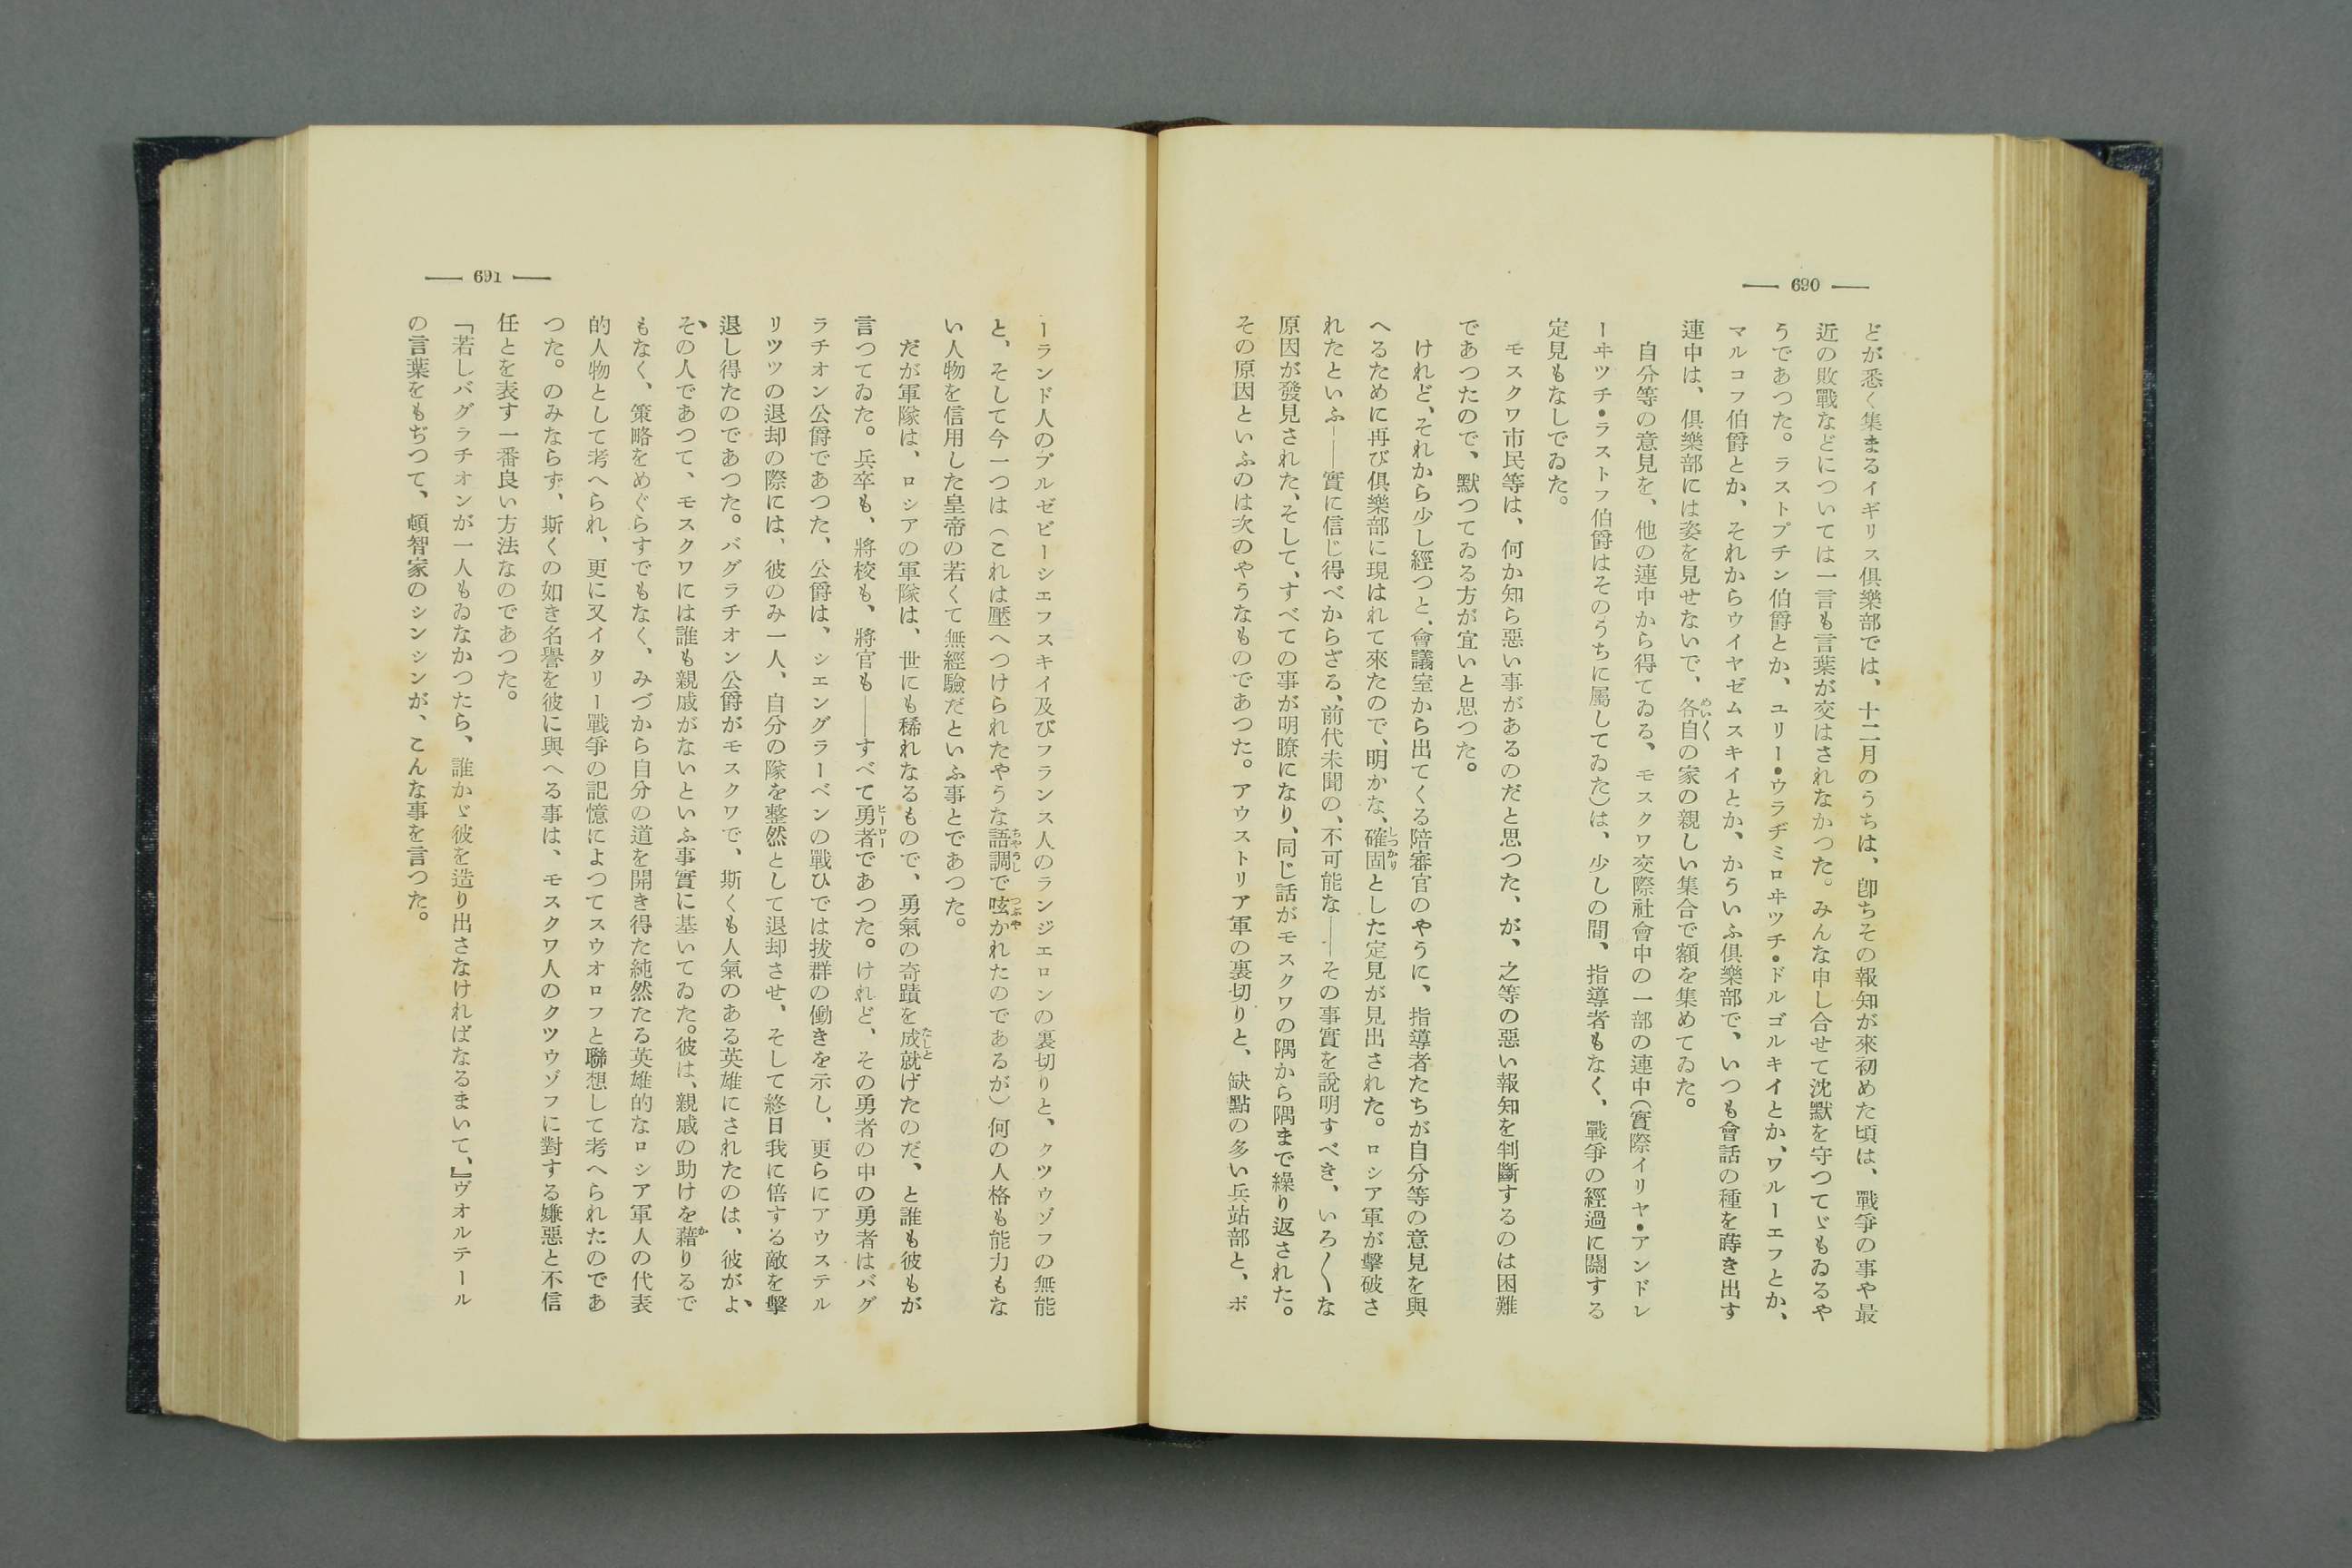 — 690 —
どが悉く集まるイギリス倶樂部では、十二月のうちは、卽ちその報知が來初めた頃は、戰爭の事や最
近の敗戰などについては一言も言葉が交はされなかつた。みんな申し合せて沈默を守つてゞもゐるや
うであつた。ラストプチン伯爵とか、ユリー・ウラヂミロヰツチ・ドルゴルキイとか、ワルーエフとか、
マルコフ伯爵とか、それからウイヤゼムスキイとか、かういふ倶樂部で、いつも會話の種を蒔き出す
連中は、倶樂部には姿を見せないで、各自の家の親しい集合で額を集めてゐた。
自分等の意見を、他の連中から得てゐる、モスクワ交際社會中の一部の連中（實際イリヤ・アンドレ
ーヰツチ・ラストフ伯爵はそのうちに屬してゐた）は、少しの間、指導者もなく、戰爭の經過に關する
定見もなしでゐた。
モスクワ市民等は、何か知ら惡い事があるのだと思つた、が、之等の惡い報知を判斷するのは困難
であつたので、默つてゐる方が宜いと思つた。
けれど、それから少し經つと、會議室から出てくる陪審官のやうに、指導者たちが自分等の意見を與
へるために再び倶樂部に現はれて來たので、明かな、確固とした定見が見出された。ロシア軍が擊破さ
れたといふ——實に信じ得べからざる、前代未聞の、不可能な——その事實を說明すべき、いろ〱な
原因が發見された、そして、すべての事が明瞭になり、同じ話がモスクワの隅から隅まで繰り返された。
その原因といふのは次のやうなものであつた。アウストリア軍の裏切りと、缺點の多い兵站部と、ポ
— 691 —
ーランド人のプルゼビーシエフスキイ及びフランス人のランジエロンの裏切りと、クツウゾフの無能
と、そして今一つは（これは壓へつけられたやうな語調で呟かれたのであるが）何の人格も能力もな
い人物を信用した皇帝の若くて無經驗だといふ事とであつた。
だが軍隊は、ロシアの軍隊は、世にも稀れなるもので、勇氣の奇蹟を成就げたのだ、と誰も彼もが
言つてゐた。兵卒も、將校も、將官も——すべて勇者であつた。けれど、その勇者の中の勇者はバグ
ラチオン公爵であつた、公爵は、シエングラーベンの戰ひでは拔群の働きを示し、更らにアウステル
リツツの退却の際には、彼のみ一人、自分の隊を整然として退却させ、そして終日我に倍する敵を擊
退し得たのであつた。バグラチオン公爵がモスクワで、斯くも人氣のある英雄にされたのは、彼がよ
その人であつて、モスクワには誰も親戚がないといふ事實に基いてゐた。彼は、親戚の助けを藉りるで
もなく、策略をめぐらすでもなく、みづから自分の道を開き得た純然たる英雄的なロシア軍人の代表
的人物として考へられ、更に又イタリー戰爭の記憶によつてスウオロフと聯想して考へられたのであ
つた。のみならず、斯くの如き名譽を彼に與へる事は、モスクワ人のクツウゾフに對する嫌惡と不信
任とを表す一番良い方法なのであつた。
「若しバグラチオンが一人もゐなかつたら、誰かゞ彼を造り出さなければなるまいて、』ヴオルテール
の言葉をもぢつて、頓智家のシンシンが、こんな事を言つた。